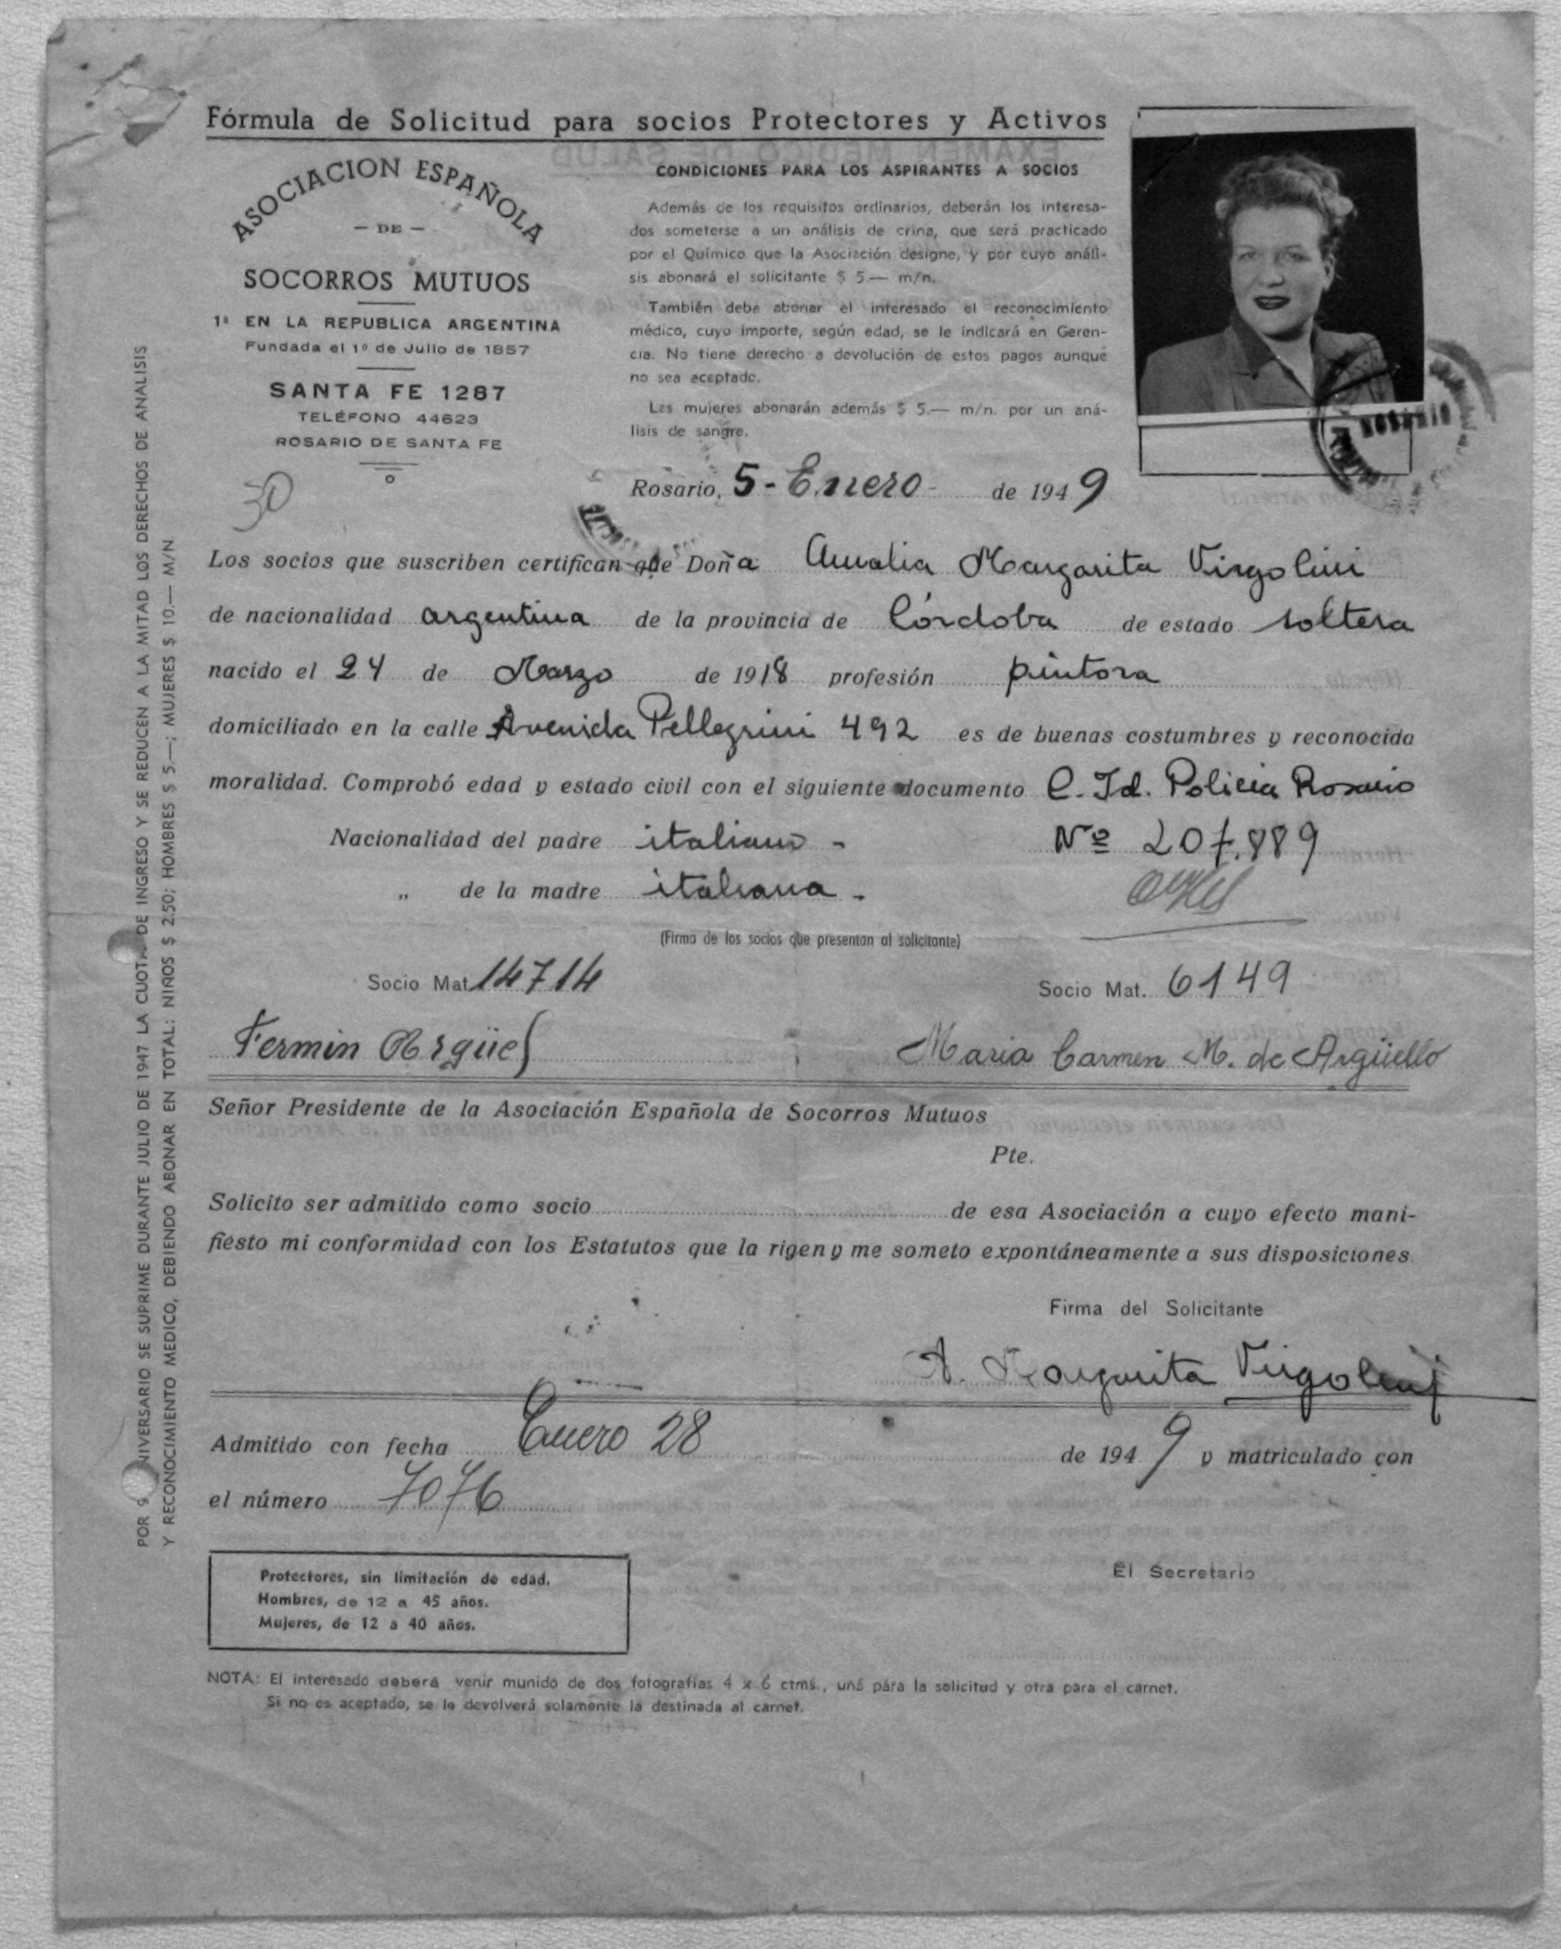 Fórmula de Solicitud para socios Protectores y Activos
ASOCIACION ESPAÑOLA
— DE —
SOCORROS MUTUOS
1ª EN LA REPUBLICA ARGENTINA
Fundada el 1º de Julio de 1857
SANTA FE 1287
TELÉFONO 44623
ROSARIO DE SANTA FE
30
CONDICIONES PARA LOS ASPIRANTES A SOCIOS
Además de los requisitos ordinarios, deberán los interesa-
dos someterse a un análisis de orina, que será practicado
por el Químico que la Asociación designe, y por cuyo análi-
sis abonará el solicitante $ 5.— m/n.
También debe abonar el interesado el reconocimiento
médico, cuyo importe, según edad, se le indicará en Geren-
cia. No tiene derecho a devolución de estos pagos aunque
no sea aceptado.
Las mujeres abonarán además $ 5.— m/n. por un aná-
lisis de sangre.
ROSARIO
Rosario, 5 - Enero - de 1949
Los socios que suscriben certifican que Doña Amalia Margarita Virgolini
de nacionalidad argentina de la provincia de Córdoba de estado soltera
nacido el 24 de Marzo de 1918 profesión pintora
domiciliado en la calle Avenida Pellegrini 492 es de buenas costumbres y reconocida
moralidad. Comprobó edad y estado civil con el siguiente documento C. Id. Policía Rosario
Nacionalidad del padre italiano - Nº 207.889
„ de la madre italiana -
(Firma de los socios que presentan al solicitante)
Socio Mat. 14714 Socio Mat. 6149
Fermin Argüel María Carmen M. de Argüello
Señor Presidente de la Asociación Española de Socorros Mutuos
Pte.
Solicito ser admitido como socio de esa Asociación a cuyo efecto mani-
fiesto mi conformidad con los Estatutos que la rigen y me someto expontáneamente a sus disposiciones.
Firma del Solicitante
A. Margarita Virgolini
Admitido con fecha Enero 28 de 1949 y matriculado con
el número 7076
El Secretario
Protectores, sin limitación de edad.
Hombres, de 12 a 45 años.
Mujeres, de 12 a 40 años.
NOTA: El interesado deberá venir munido de dos fotografías 4 x 6 ctms., una para la solicitud y otra para el carnet.
Si no es aceptado, se le devolverá solamente la destinada al carnet.
POR 9 NIVERSARIO SE SUPRIME DURANTE JULIO DE 1947 LA CUOTA DE INGRESO Y SE REDUCEN A LA MITAD LOS DERECHOS DE ANALISIS
Y RECONOCIMIENTO MEDICO, DEBIENDO ABONAR EN TOTAL: NIÑOS $ 2.50; HOMBRES $ 5.—; MUJERES $ 10.— M/N